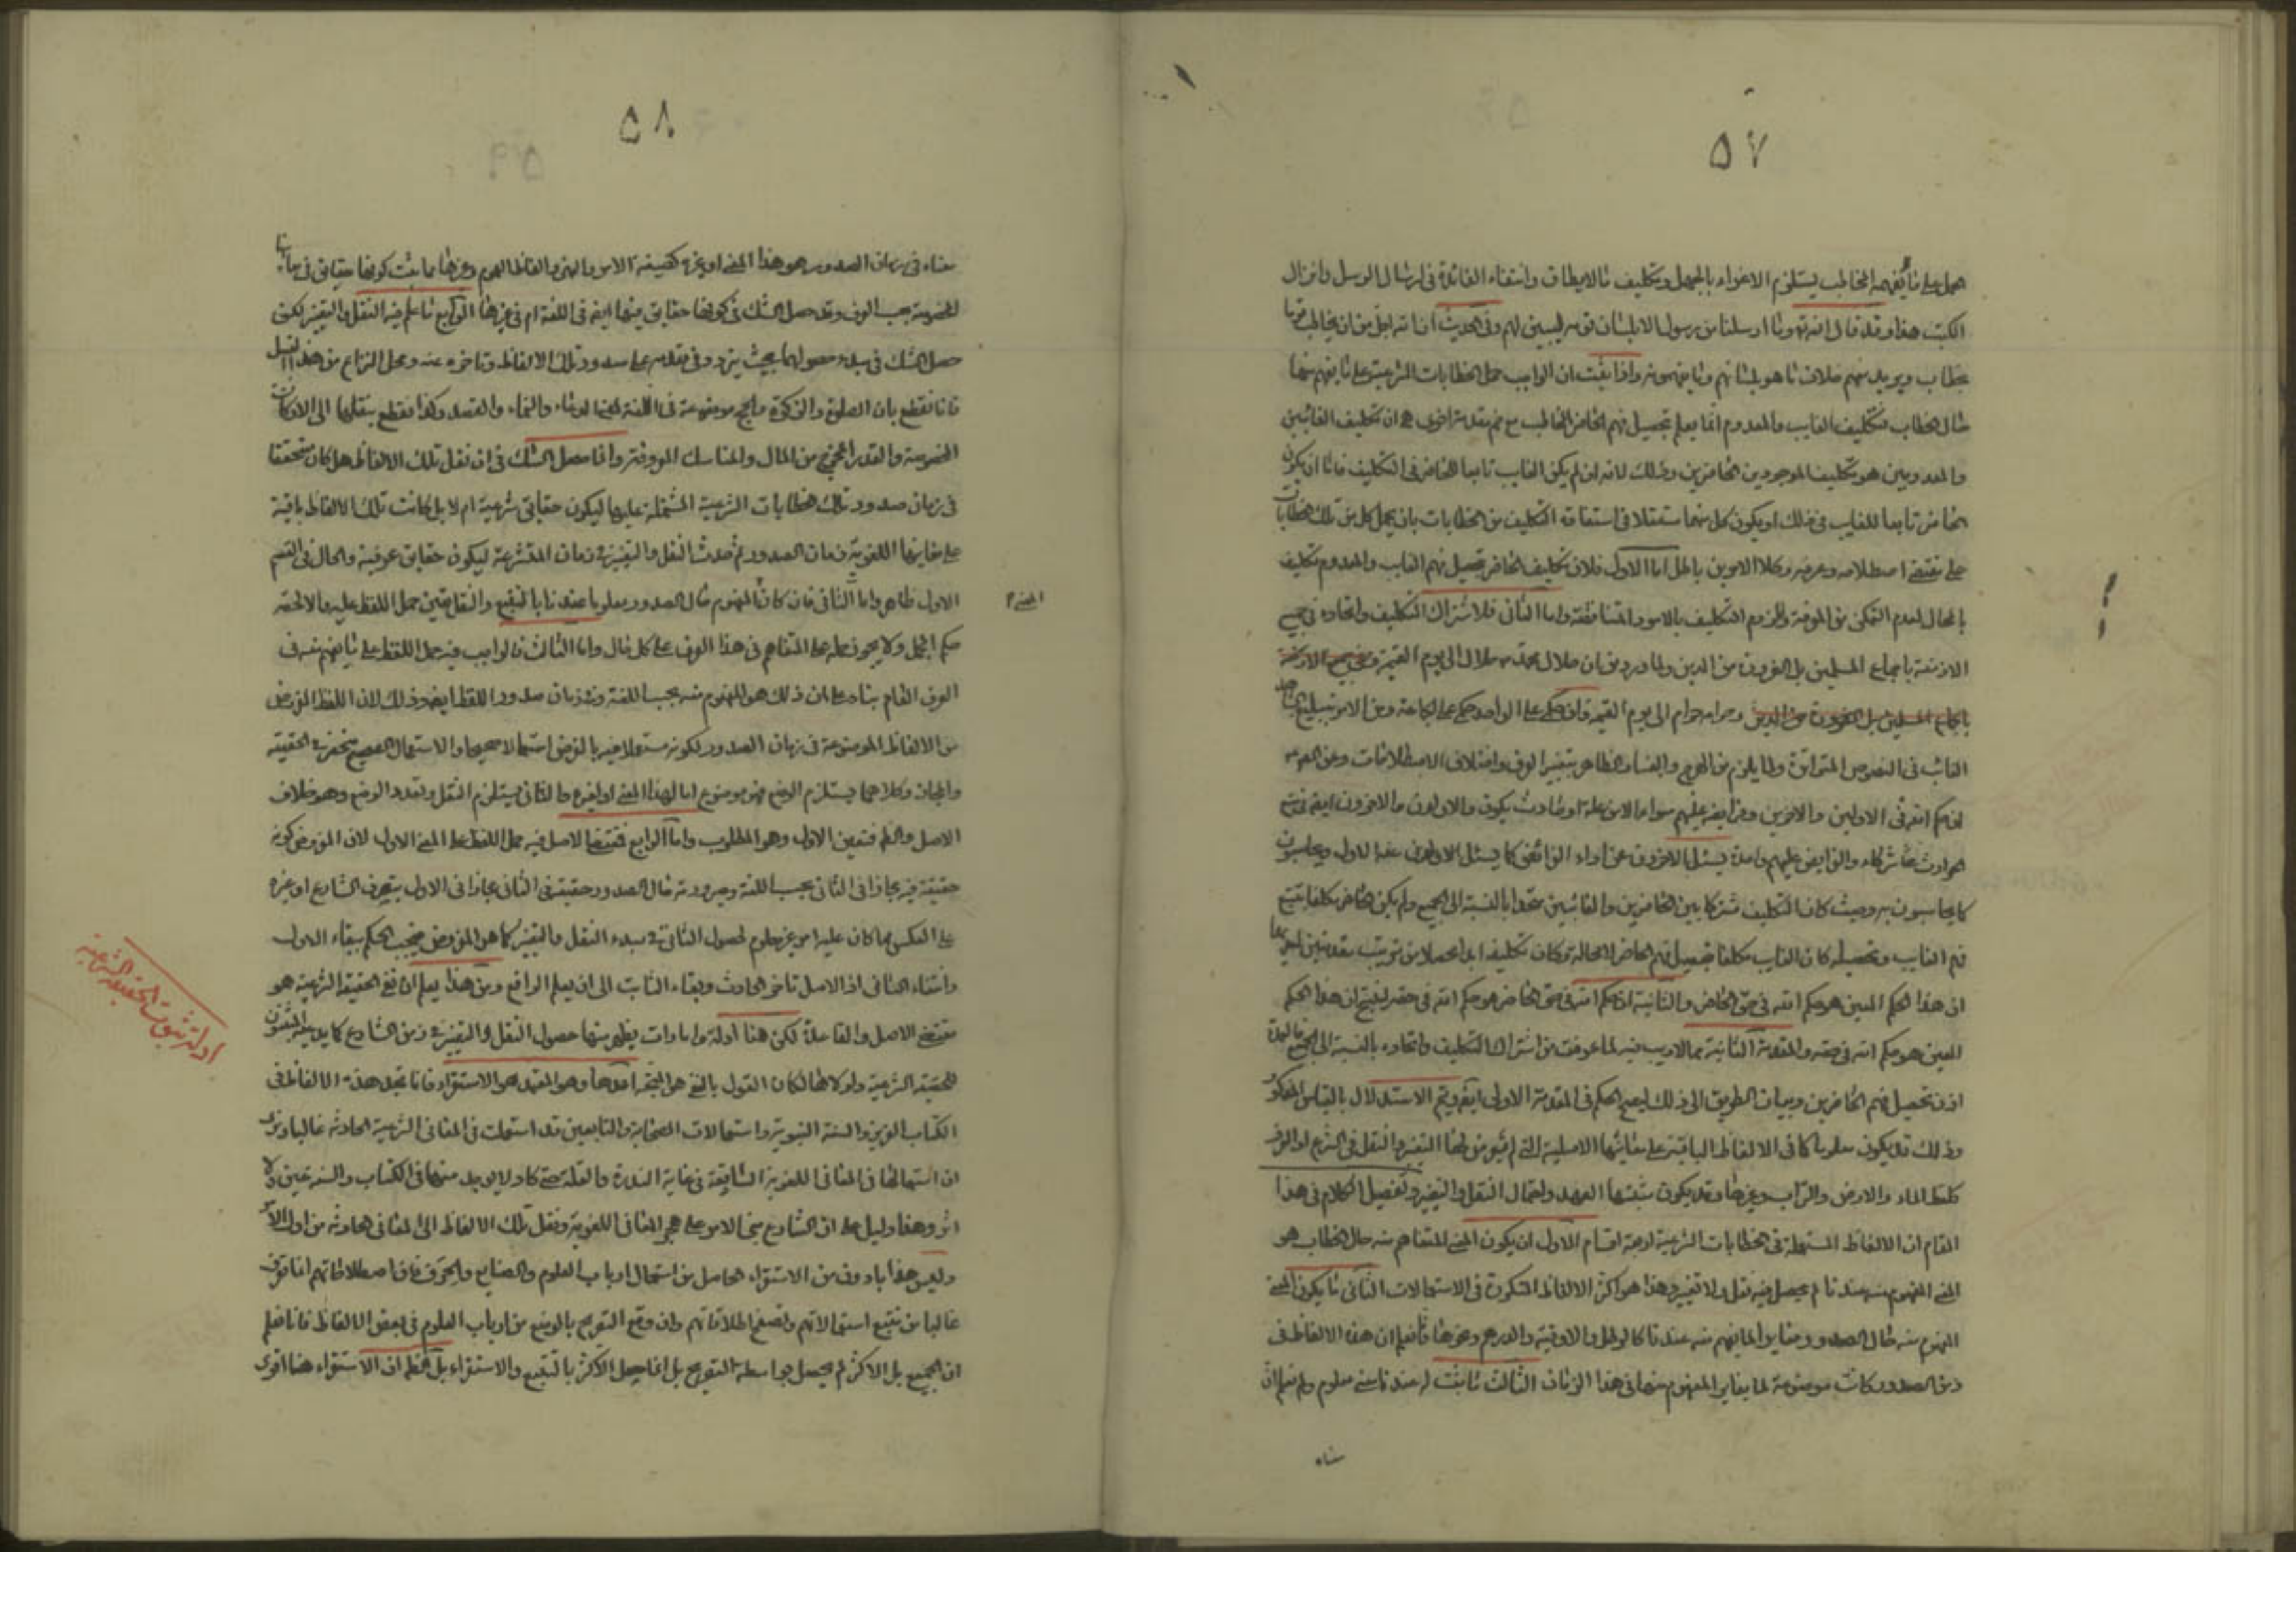 ٥٧
حمل على ما يفهمه المخاطب يستلزم الاغراء بالجهل وتكليف ما لا يطاق وانتفاء الفائدة في ارسال الرسل وانزال
الكتب هذا وقد قال الله تع وما ارسلنا من رسول الا بلسان قومه ليبين لهم وفي الحديث ان الله اجل من ان يخاطب قوما
بخطاب ويريد منهم خلاف ما هو بلسانهم وما يفهمونه واذا ثبت ان الواجب حمل الخطابات الشرعية على ما يفهم منها
حال الخطاب فتكليف الغايب والمعدوم انما يعلم بتحصيل فهم الحاضر المخاطب مع ضم مقدمة اخرى هي ان تكليف الغائبين
والمعدومين هو تكليف الموجودين الحاضرين وذلك لانه ان لم يكن الغايب تابعا للحاضر في التكليف فاما ان يكون
الحاضر تابعا للغايب في ذلك او يكون كل منهما مستقلا في استفادة التكليف من الخطابات بان يحمل كل من تلك الخطابات
على مقتضى اصطلاحه وعرفه وكلا الامرين باطل اما الاول فلان تكليف الحاضر بتحصيل فهم الغايب والمعدوم تكليف
بالمحال لعدم التمكن من المعرفة ولزوم التكليف بالامور المتناقضة واما الثاني فلاشتراك التكليف واتحاده في جميع
الازمنة باجماع المسلمين بل الضرورة من الدين ولما ورد من ان حلال محمد ص حلال الى يوم القيمة
وحرامه حرام الى يوم القيمة وان حكمي على الواحد حكمي على الجماعة ومن الامر بتبليغ الشاهد
الغائب في النصوص المتواترة ولما يلزم من الهرج والفساد الظاهر بتغير العرف واختلاف الاصطلاحات وعن
ان حكم الله في الاولين والاخرين وفرايضه عليهم سواء الا من علة او حادث يكون والاولون والاخرون ايضا في منع
الحوادث شركاء والفرايض عليهم واحدة يسئل الاخرون عن اداء الفرائض كما يسئل الاولون عنه الاول ويحاسبون
كما يحاسبون به وحيث كان التكليف مشتركا بين الحاضرين والغائبين متحدا بالنسبة الى الجميع ولم يكن الحاضر مكلفا بتتبع
فهم الغايب وتحصيله كان الغايب مكلفا بتحصيل فهم الحاضر لا محالة وكان تكليفه ابدا محصلا من ترتيب مقدمتين
ان هذا الحكم المعين هو حكم الله في حق الحاضر والثانية ان حكم الله في حق الحاضر هو حكم الله في حقه لينتج ان هذا الحكم
المعين هو حكم الله في حقه والمقدمة الثانية مما لا ريب فيه لما عرفت من اشتراك التكليف واتحاده بالنسبة الى الجميع
اذن تحصيل فهم الحاضرين وبيان الطريق الى ذلك ليصح الحكم في المقدمة الاولى ايضا ويتم الاستدلال بالقياس المذكور
وذلك قد يكون معلوما كما في الالفاظ الباقية على معانيها الاصلية التي لم يعرض لها التغير والنقل في الشرع او العرف
كلفظ الماء والارض والتراب وغيرها وقد يكون مشتبها لبعد العهد ولاحتمال النقل والتغير وتفصيل الكلام في هذا
المقام ان الالفاظ المستعملة في الخطابات الشرعية اربعة اقسام الاول ان يكون المعنى المتفاهم منه حال الخطاب هو
المعنى المفهوم منه عندنا لم يحصل فيه نقل ولا تغير وهذا هو اكثر الالفاظ المتكررة في الاستعمالات الثاني ما يكون المعنى
المفهوم منه حال الصدور مغايرا لما يفهم منه عندنا كالرطل والاوقية والدرهم ونحوها فانا نعلم ان هذه الالفاظ في
زمن الصدور كانت موضوعة لما يغاير المفهوم منها في هذا الزمان الثالث ما ثبت له عندنا معنى معلوم ولم نعلم ان
معناه
٥٨
معناه في زمان الصدور هو هذا المعنى او غيره كصيغة الامر والنهي والفاظ العموم وغيرها مما يثبت كونها حقايق في معانيها
المخصوصة بحسب العرف وقد حصل الشك في كونها حقايق فيها ايضا في اللغة ام في غيرها الرابع ما علم فيه النقل والتغير لكن
حصل الشك في مبدء حصولهما بحيث يتردد في تقدمه على صدور تلك الالفاظ وتاخره عنه ومحل النزاع من هذا القبيل
فانا نقطع بان الصلوة والزكوة والحج موضوعة في اللغة للدعاء والنماء والقصد وكذا نقطع بنقلها الى الاركان
المخصوصة والقدر المخرج من المال والمناسك المعروفة وانما حصل الشك في ان نقل تلك الالفاظ هل كان متحققا
في زمان صدور تلك الخطابات الشرعية المشتملة عليها ليكون حقايق شرعية ام لا بل كانت تلك الالفاظ باقية
على معانيها اللغوية زمان الصدور ثم حدث النقل والتغير في زمان المتشرعة ليكون حقايق عرفية والحال في القسم
الاول ظاهر واما الثاني فان كان المفهوم حال الصدور معلوما عندنا بالتتبع والنقل تعين حمل اللفظ عليه والا لحقه
المعنى
حكم المجمل ولا يجوز حمله على المتفاهم في هذا العرف على كل حال واما الثالث فالواجب فيه حمل اللفظ على ما يفهم منه في
العرف العام بناء على ان ذلك هو المفهوم منه بحسب اللغة وفي زمان صدور اللفظ ايضا وذلك لان اللفظ المفروض
من الالفاظ الموضوعة في زمان الصدور لكونه مستعملا فيه بالفرض استعمالا صحيحا والاستعمال الصحيح منحصر في الحقيقة
والمجاز وكلاهما يستلزم الوضع فهو موضوع اما لهذا المعنى او لغيره والثاني يستلزم النقل وتعدد الوضع وهو خلاف
الاصل والظ فتعين الاول وهو المطلوب واما الرابع فمقتضى الاصل فيه حمل اللفظ على المعنى الاول لان المفروض كونه
حقيقة فيه مجازا في الثاني بحسب اللغة وصيرورته حال الصدور حقيقة في الثاني مجازا في الاول بتصرف الشارع او غيره
على العكس مما كان عليه امر غير معلوم لحصول الشك في مبدء النقل والتغير كما هو المفروض فيجب الحكم ببقاء الاول
وانتفاء الثاني اذ الاصل تاخر الحادث وبقاء الثابت الى ان يعلم الرافع ومن هذا يعلم ان نفي الحقيقة الشرعية هو
مقتضى الاصل والقاعدة لكن هنا ادلة وامارات يظهر منها حصول النقل والتغير في زمن الشارع كما يدعيه المثبتون
للحقيقة الشرعية ولولاها لكان القول بالنفي هو المتجه احدها وهو العمدة هو الاستقراء فانا نجد هذه الالفاظ في
الكتاب العزيز والسنة النبوية واستعمالات الصحابة والتابعين قد استعملت في المعاني الشرعية الحادثة غالبا ونرى
ان استعمالها في المعاني اللغوية السابقة في غاية الندرة والقلة حتى كاد لا يوجد منها في الكتاب والسنة عين ولا
اثر وهذا دليل على ان الشارع بنى الامر على هجر المعاني اللغوية ونقل تلك الالفاظ الى المعاني الحادثة من اول الامر
وليس هذا بادون من الاستقراء الحاصل من استعمال ارباب العلوم والصنايع والحرف فان اصطلاحاتهم انما تعرف
غالبا من تتبع استعمالاتهم وتصفح اطلاقاتهم وان وقع التصريح بالوضع من ارباب العلوم في بعض الالفاظ فانا نعلم
ان الجميع بل الاكثر لم يحصل بواسطة التصريح بل انما حصل الاكثر بالتتبع والاستقراء بل الظ ان الاستقراء هنا اقوى
ادلة ثبوت الحقيقة الشرعية